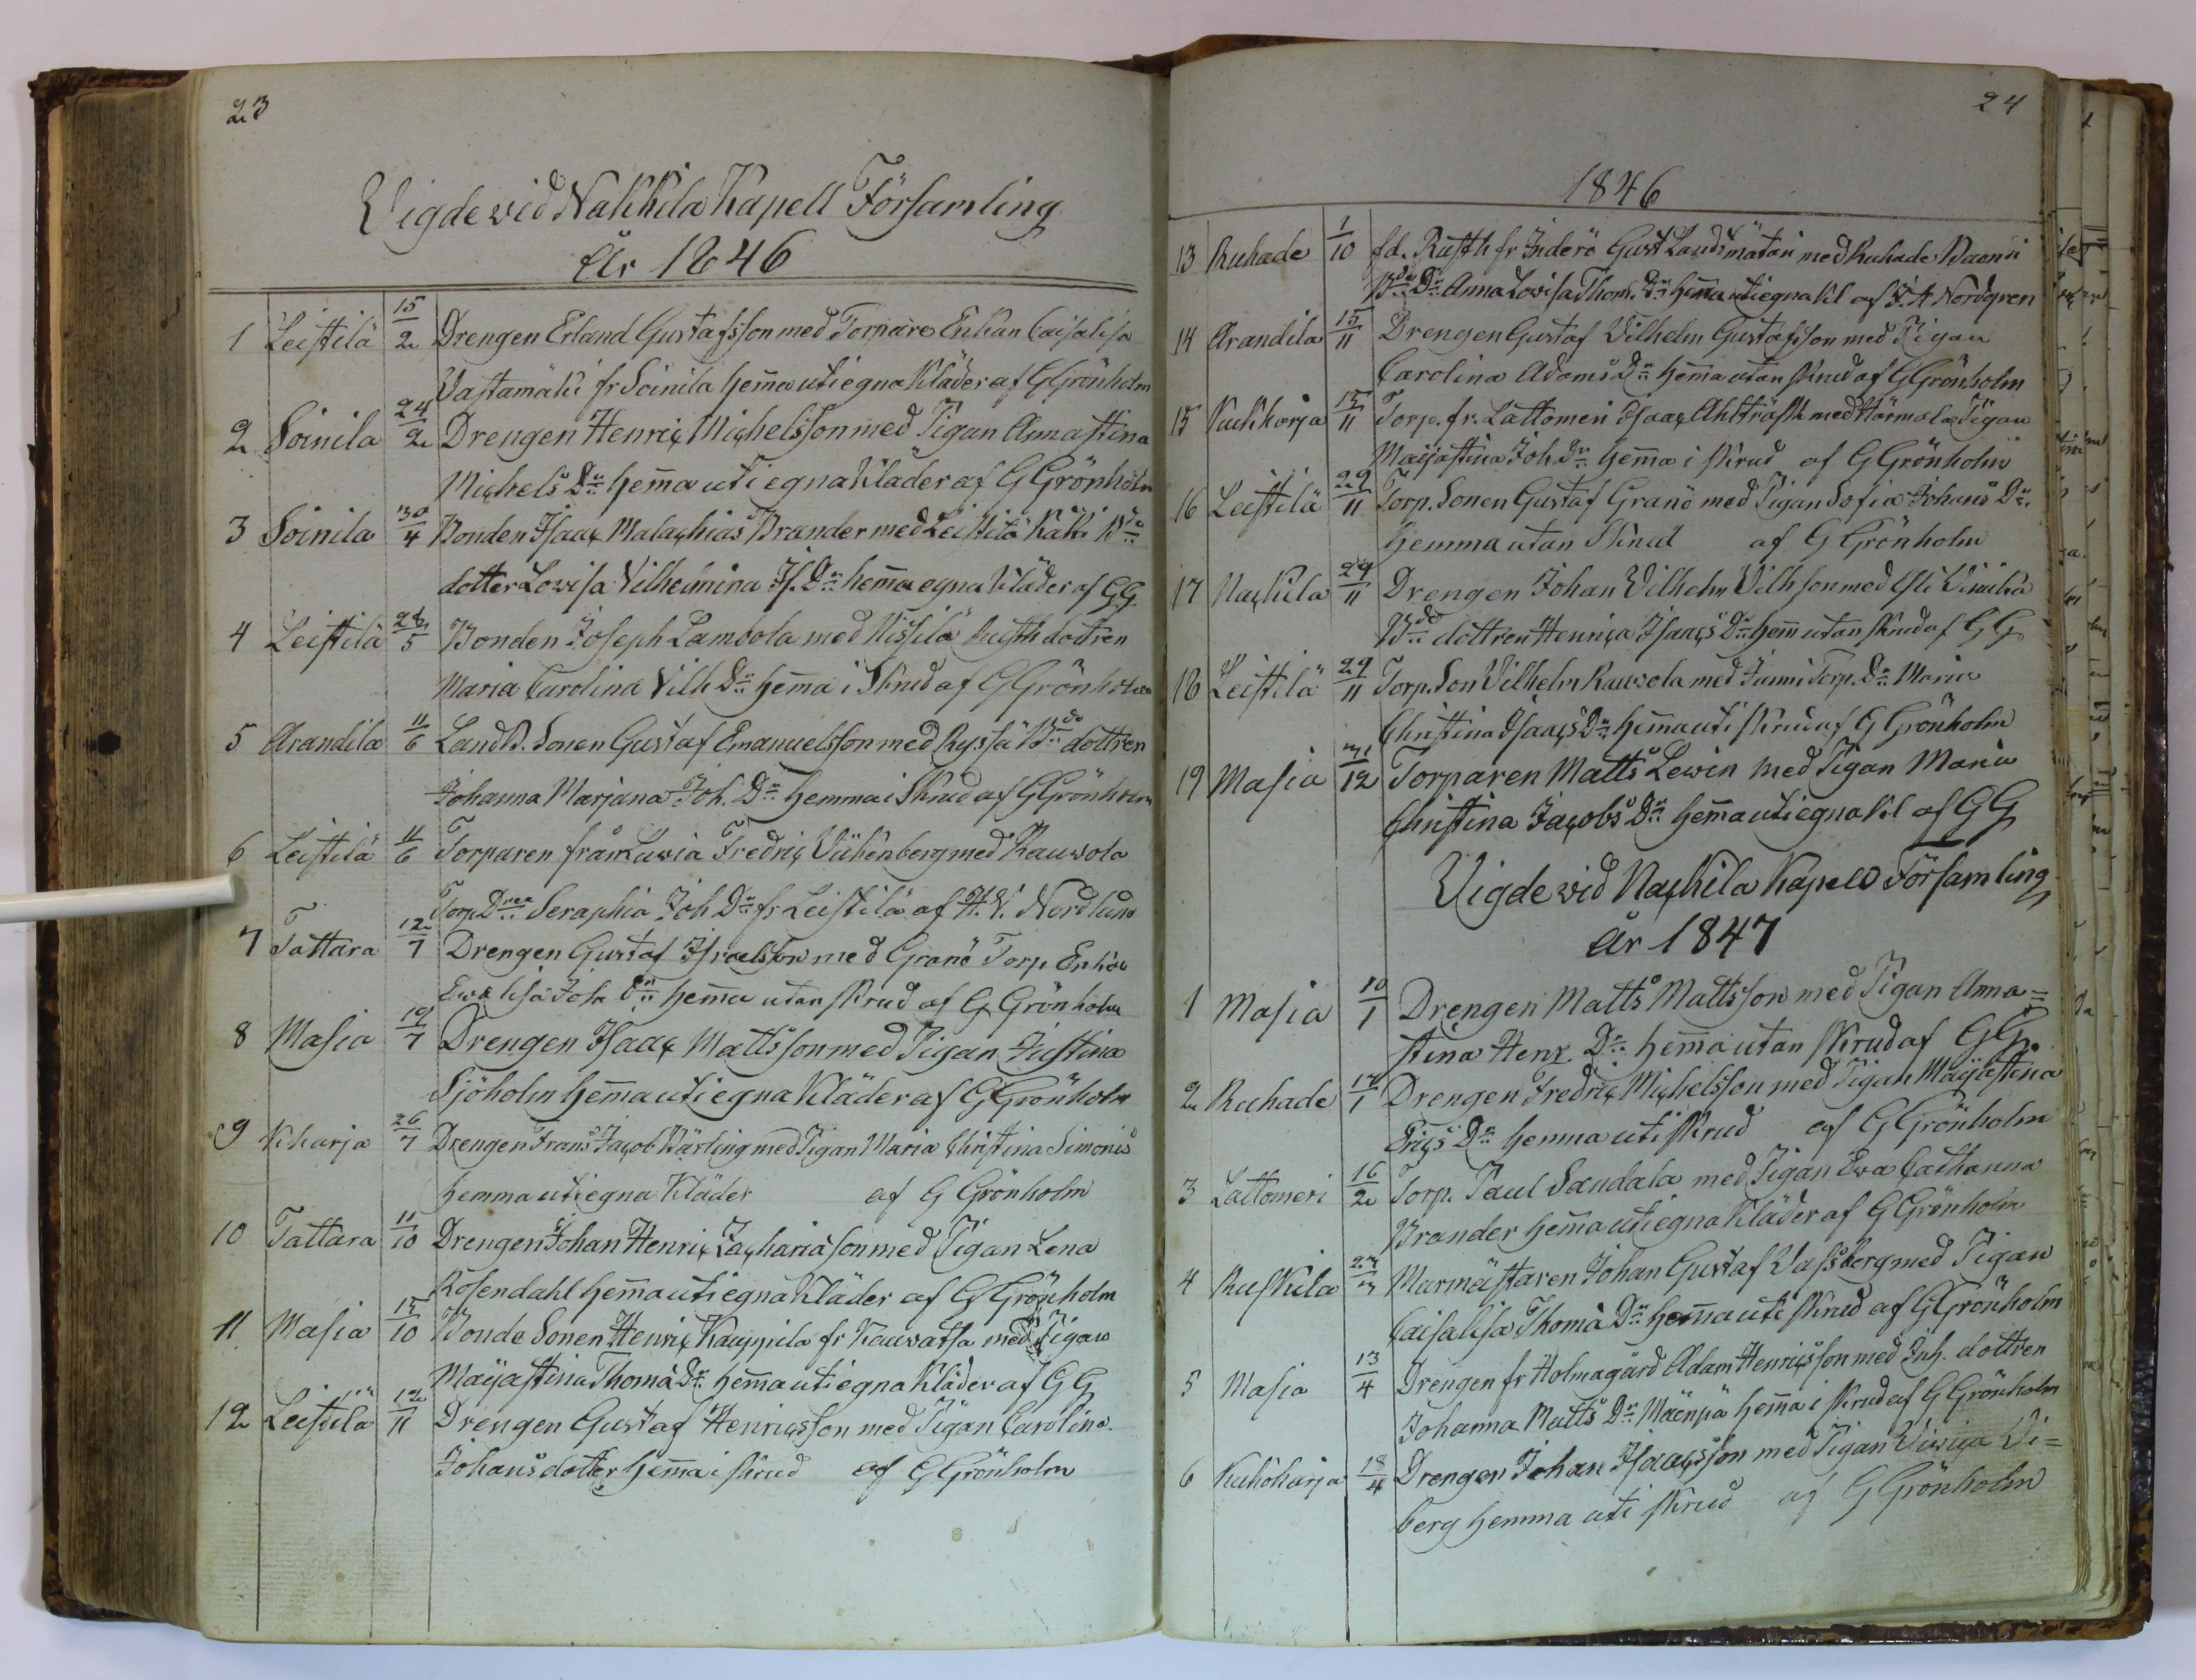 23
Vigde vid Nakkila Kapell Församling
År 1846
1 Leistilä 15/2 Drengen Erland Gustafsson med Torpare Enkan Caisalisa
Vastamäki fr Soinila hem̄a uti egna Kläder af GGrönholm
2 Soinila 24/2 Drengen Henric Michelsson med Pigan Annastina
Michels Dr hem̄a uti egna Kläder af G Grönholm
3 Soinila 30/4 Bonden Isaac Malachias Brander med Leistilä Käki Bde
dotter Lovisa Vilhelmina Is. Dr hem̄a egna Kläder af GG
4 Leistilä 24/5 Bonden Joseph Lambola med Kissilä Rusth dottren
Maria Carolina Vilh Dr hem̄a i Skrud af GGrönholm
5 Arandila 11/6 LandB. Sonen Gustaf Emanuelsson med Ryssä Bde dottren
Johanna Marjana Joh. Dr hemma i Skrud af GGrönholm
6 Leistilä 11/6 Torparen från Luvia Fredric Vükenberg med Rauvola
Torp. Dren Seraphia Joh Dr fr Leistilä af H.V. Nordlund
7 Tattara 12/7 Drengen Gustaf Israelsson med Granö Torp Enkan
Evalisa Joh Dr hem̄a utan skrud af G Grönholm
8 Masia 19/7 Drengen Isaac Mattsson med Pigan Justina
Sjöholm hem̄a uti egna Kläder af GGrönholm
9 Kharja 26/7 Drengen Frans Jacob Kärling med Pigan Maria Christina Simonis
hemma uti egna Kläder af G Grönholm
10 Tattara 11/10 Drengen Johan Henric Zachariasson med Pigan Lena
Rosendahl hem̄a uti egna Kläder af G Grönholm
11 Masia 15/10 Bonde Sonen Henric Kauppila fr Kauvatsa med Pigan
Majastina Thoma Dr hem̄a uti egna Kläder af GG
12 Leistilä 12/11 Drengen Gustaf Henricsson med Pigan Carolina
Johansdotter hem̄a i skrud af G Grönholm
24
1846
13 Ruhade 1/10 fd. Rusth fr Inderö Gust Landtmätari med Ruhade Vaensi
Bde Dr Anna Lovisa Thom. Dr hem̄a uti egna kl af F. A Nordgren
14 Arandila 15/11 Drengen Gustaf Vilhelm Gustafsson med Pigan
Carolina Adams Dr hem̄a utan skrud af GGrönholm
15 Kukkorja 15/11 Torp. fr. Lattomeri Isaac Ahlträsk med Hormola Pigan
Majastina Joh Dr hem̄a i skrud af G Grönholm
16 Leistilä 29/11 Torp. Sonen Gustaf Granö med Pigan Sofia Johans Dr
hemma utan Skrud af G Grönholm
17 Nackila 29/11 Drengen Johan Vilhelm Vilhsson med Yli Viinikä
Bde dottren Henrica Isaacs Dr hem̄ utan skrud af GG
18 Leistilä 29/11 Torp. Son Vilhelm Rauvola med Junni Torp. Dr Maria
Christina Isaacs Dr hem̄a uti skrud af G Grönholm
19 Masia 31/12 Torparen Matts Lewin med Pigan Maria
Christina Jacobs Dr hem̄a uti egna kl af GG
Vigde vid Nackila Kapell Församling
år 1847
1 Masia 10/1 Drengen Matts Mattsson med Pigan Anna=
stina Henr. Dr hem̄a utan skrud af GG.
2 Ruhade 17/1 Drengen Fredric Michelsson med Pigan Majastina
Erics Dr hemma uti skrud af G Grönholm
3 Lattomeri 16/2 Torp. Paul Sandala med Pigan Eva Catharina
Brander hem̄a uti egna Kläder af G Grönholm
4 Ruskila 27/3 Murmästaren Johan Gustaf Vassberg med Pigan
Caisalisa Thoma Dr hem̄a uti skrud af GGrönholm
5 Masia 13/4 Drengen fr Holmagård Adam Henricsson med Inh. dottren
Johanna Matts Dr Mäenpä hem̄a i skrud af G Grönholm
6 Kukoharja 18/4 Drengen Johan Isaacsson med Pigan Viviqa Vi=
berg hemma uti skrud af G Grönholm